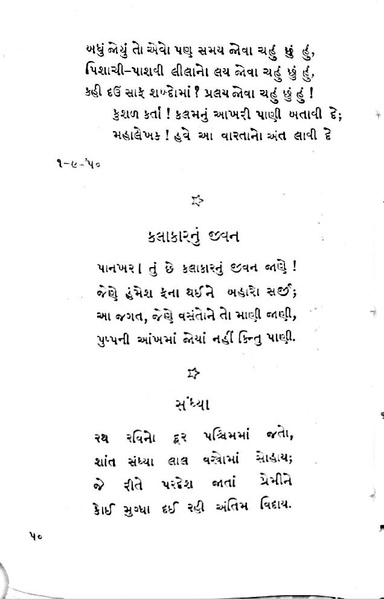 બધું જોયું તો એવો પણ સમય જોવા ચહું છું હું,
પિશાચી-પાશવી લીલાનો લય જોવા ચહું છું હું,
કહી દઉં સાફ શબ્દોમાં ? પ્રલય જોવા ચહું છું હું !
કુશળ કર્તા ! કલમનું આખરી પાણી બતાવી દે;
મહાલેખક ! હવે આ વારતાનો અંત લાવી દે
૧-૯-'૫૦
કલાકારનું જીવન
પાનખર ! તું છે કલાકારનું જીવન જાણે !
જેણે હંમેશ ફના થઈને બહારો સર્જી;
આ જગત, જેણે વસંતોને તો માણી જાણી,
પુષ્પની આંખમાં જોયાં નહીં કિન્તુ પાણી.
સંધ્યા
રથ રવિનો દૂર પશ્ચિમમાં જતો,
શાંત સંધ્યા લાલ વસ્ત્રોમાં સોહાય;
જે રીતે પરદેશ જાતાં પ્રેમીને
કોઈ મુગ્ધા દઈ રહી અંતિમ વિદાય.
૫૦